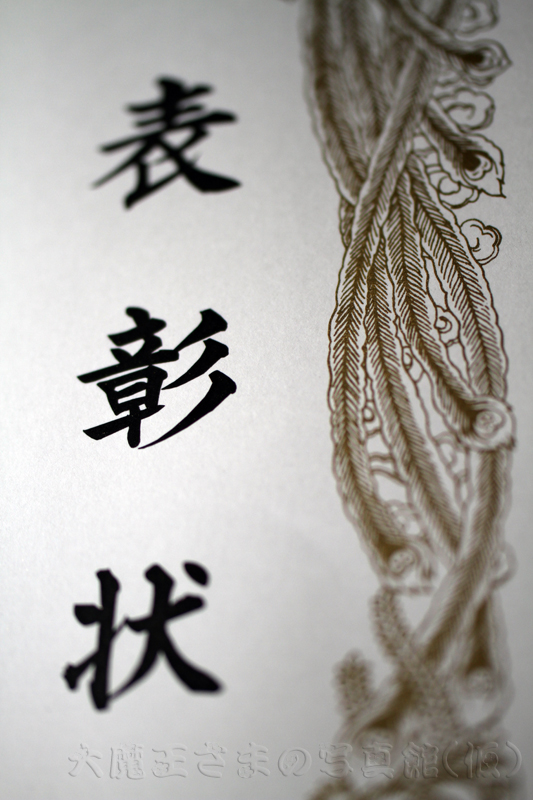 表彰状
大魔王さまの写真館(仮)